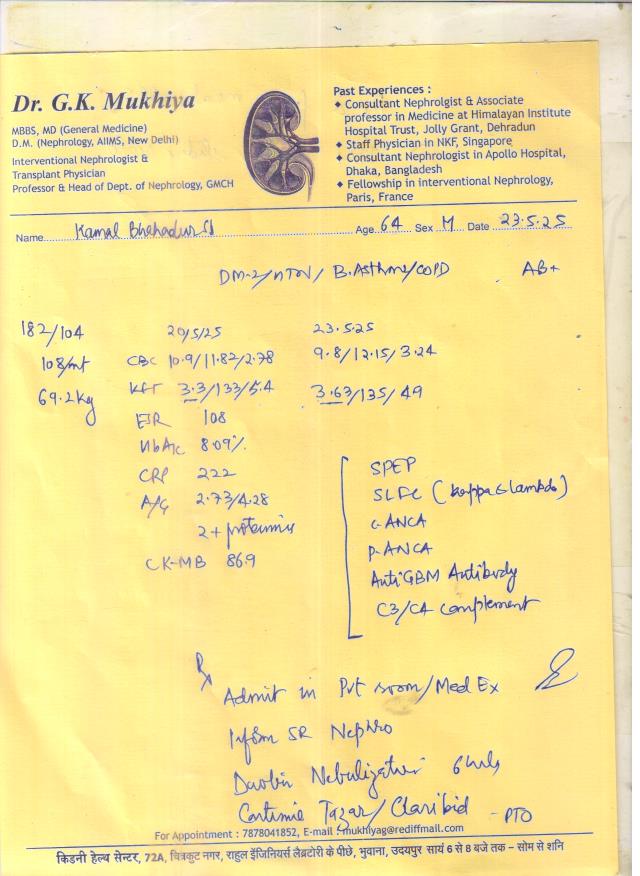 Dr. G.K. Mukhiya
MBBS, MD (General Medicine)
D.M. (Nephrology, AIIMS, New Delhi)
Interventional Nephrologist &
Transplant Physician
Professor & Head of Dept. of Nephrology, GMCH
Past Experiences :
◆ Consultant Nephrolgist & Associate
professor in Medicine at Himalayan Institute
Hospital Trust, Jolly Grant, Dehradun
◆ Staff Physician in NKF, Singapore
◆ Consultant Nephrologist in Apollo Hospital,
Dhaka, Bangladesh
◆ Fellowship in interventional Nephrology,
Paris, France
Name Kamal Bhahadur Age 64 Sex M Date 23.5.25
DM-2/HTN/ B.Asthma/COPD AB+
182/104 20/5/25 23.5.25
108/mt CBC 10.9/11.82/2.78 9.8/12.15/3.24
69.2kg KFT 3.3/133/5.4 3.63/135/49
ESR 108
HbA1c 8.09%
CRP 222
A/G 2.73/4.28
2+ proteinuria
CK-MB 86.9
SPEP
SLFC (kappa & lambda)
c-ANCA
p-ANCA
Anti GBM Antibody
C3/C4 complement
Rx
Admit in Pvt room/Med Ex
Inform SR Nephro
Duolin Nebulization 6 hrly
Continue Tazar/Claribid - PTO
For Appointment : 7878041852, E-mail : mukhiyag@rediffmail.com
किडनी हेल्थ सेन्टर, 72A, चित्रकुट नगर, राहुल इंजिनियर्स लैबट्रोरी के पीछे, भुवाना, उदयपुर सायं 6 से 8 बजे तक – सोम से शनि